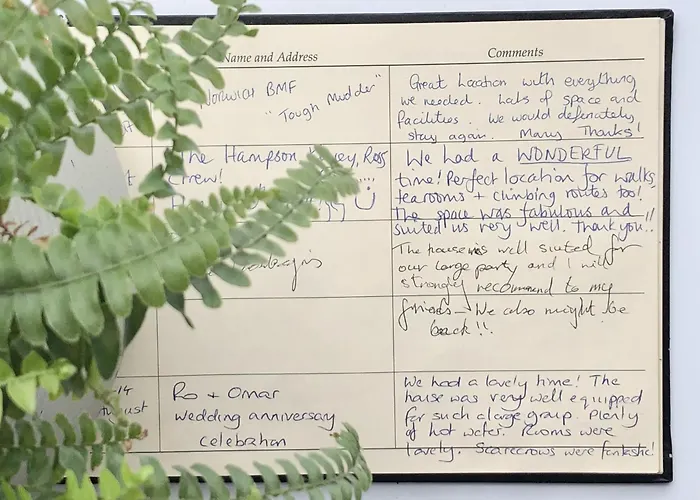 Name and Address
Comments
NORWICH BMF
"Tough Mudder"
Great Location with everything
we needed. Lots of space and
facilities. We would definately
stay again. Many Thanks!
The Hampson
Crew!
We had a WONDERFUL
time! Perfect location for walks,
tearooms + climbing routes too!
The space was fabulous and
suited us very well. Thank you!!
The house is well suited for
our large party and I will
strongly recommend to my
friends - We also might be
back!!.
-14
August
Ro + Omar
wedding anniversary
celebration
We had a lovely time! The
house was very well equipped
for such a large group. Plenty
of hot water. Rooms were
lovely. Scarecrows were fantastic!